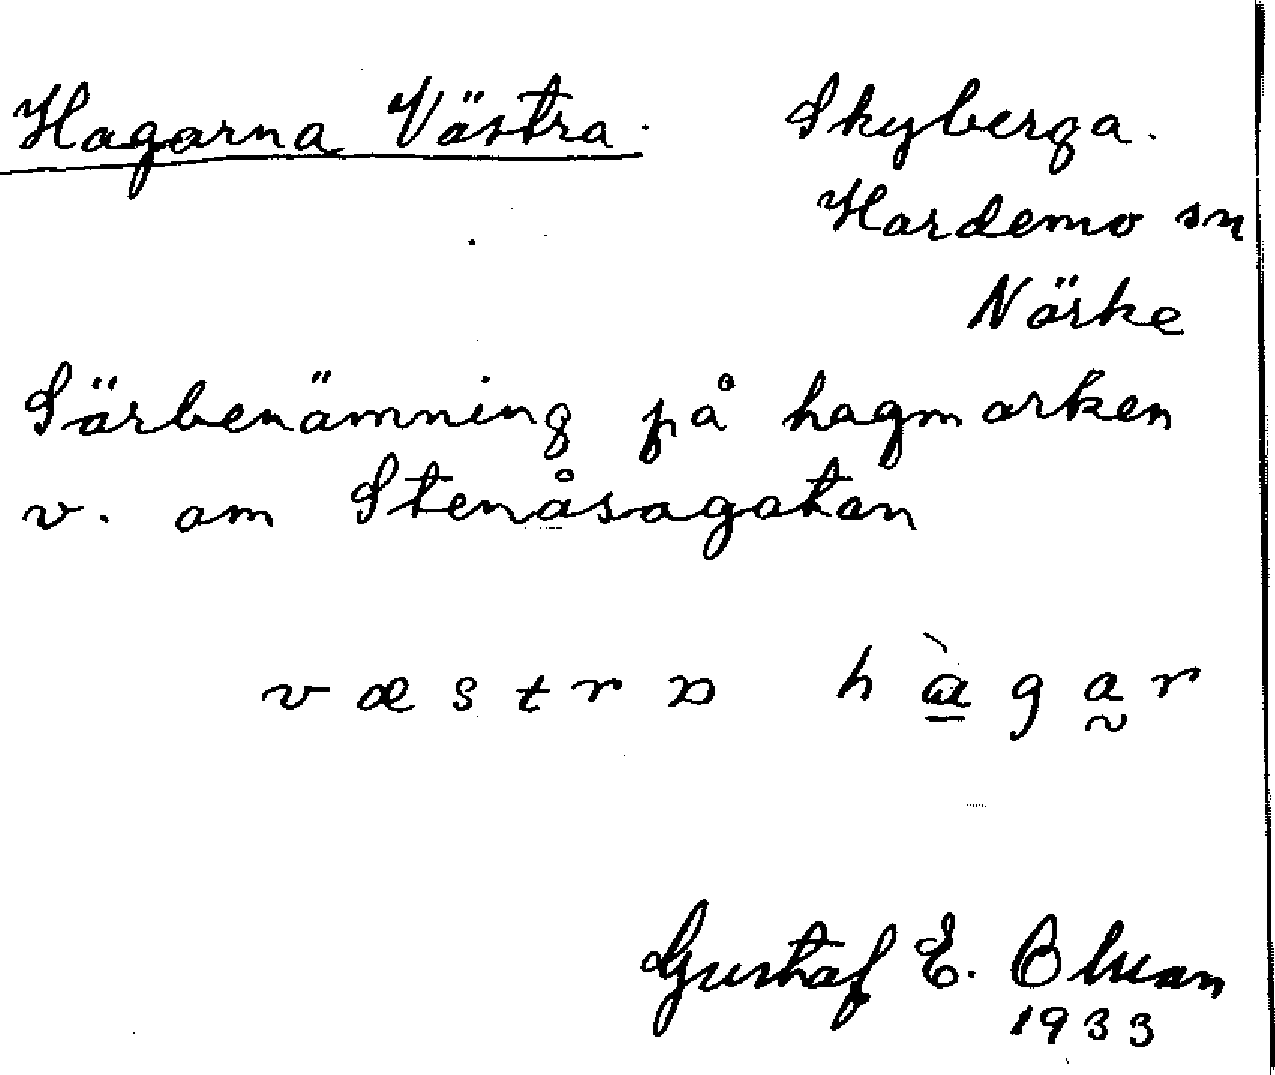 Hagarna Västra. Skyberga.
Hardemo sn
Närke
Särbenämning på hagmarken
v. om Stenåsagatan
væstrɒ hàgar
Gustaf E. Olsson
1933